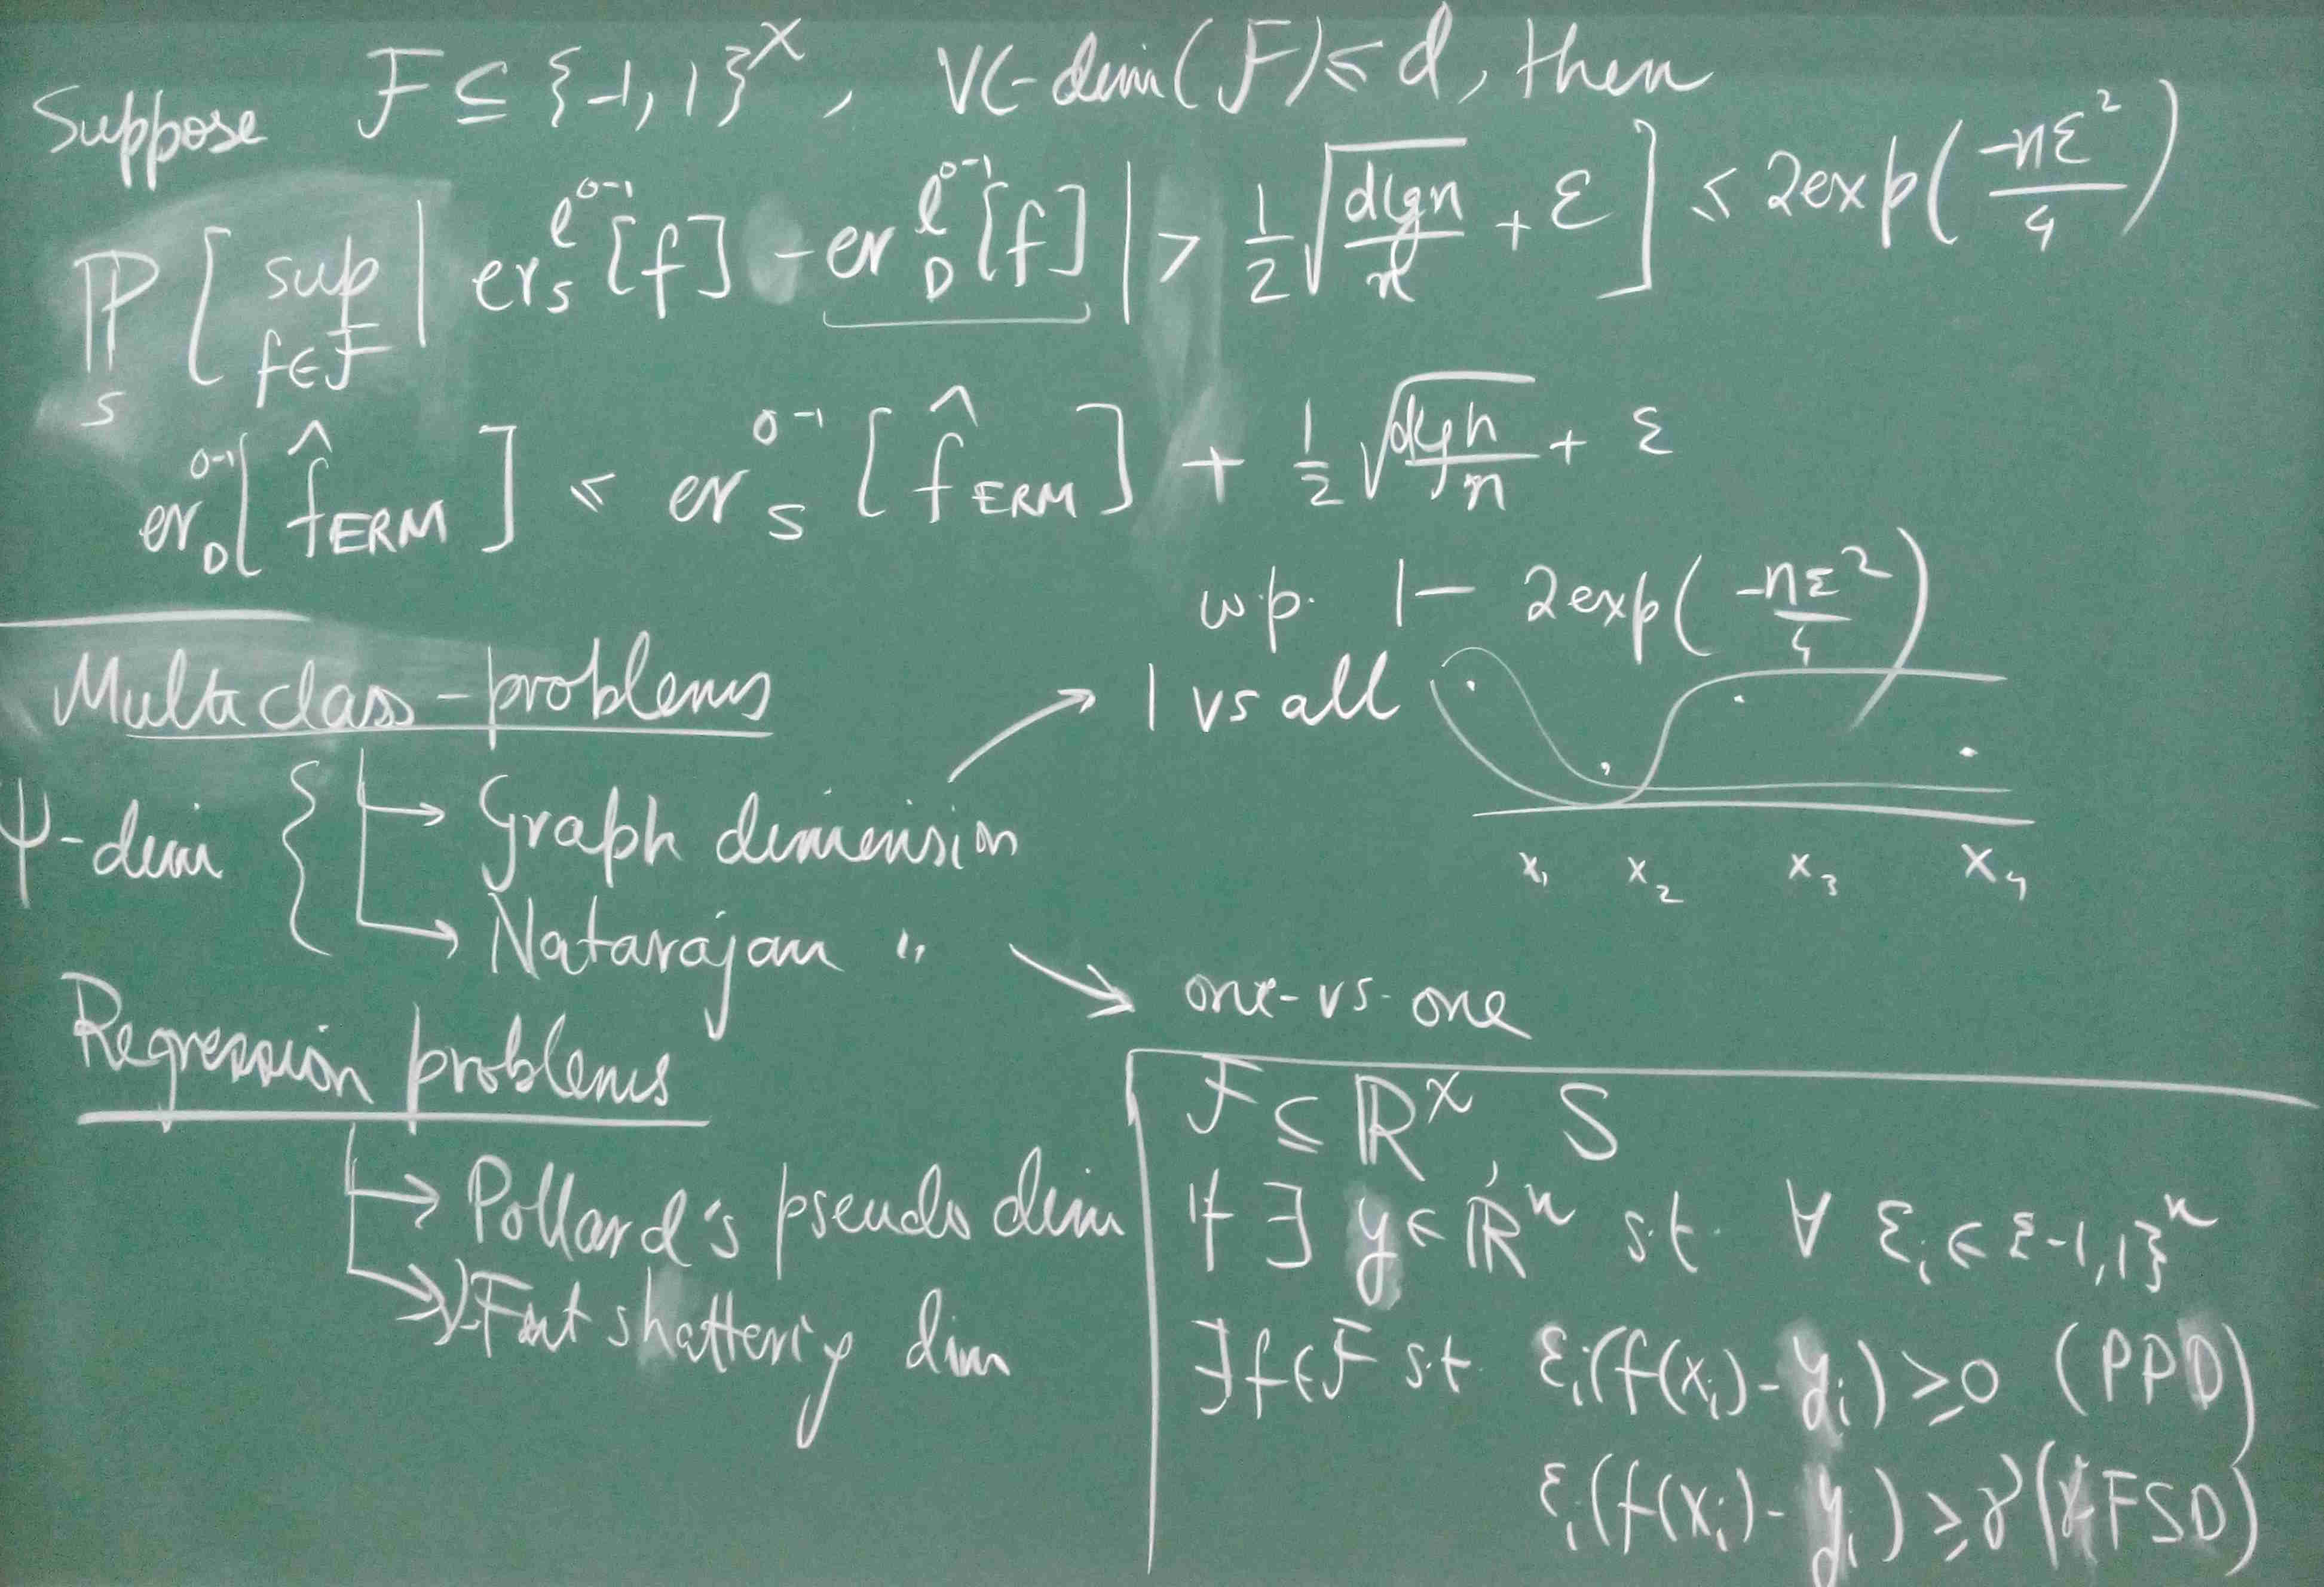 Suppose F ⊆ {-1, 1}^X, VC-dim(F) ≤ d, then
P_S [ sup_{f∈F} | er_S^{ℓ^{0-1}}[f] - er_D^{ℓ^{0-1}}[f] | > 1/2 √(d lg n / n) + ε ] ≤ 2exp(-nε²/4)
er_D^{0-1}[f̂_ERM] ≤ er_S^{0-1}[f̂_ERM] + 1/2 √(d lg n / n) + ε
w.p. 1 - 2exp(-nε²/4)
Multiclass-problems
1 vs all
Ψ-dim { → Graph dimension
x₁ x₂ x₃ x₄
→ Natarajan "
one-vs-one
Regression problems
→ Pollard's pseudo dim
→ γ-Fat shattering dim
F ⊆ ℝ^X, S
if ∃ y ∈ ℝ^n s.t. ∀ ε_i ∈ {-1, 1}^n
∃ f ∈ F s.t. ε_i(f(x_i) - y_i) ≥ 0 (PPD)
ε_i(f(x_i) - y_i) ≥ γ (γFSD)